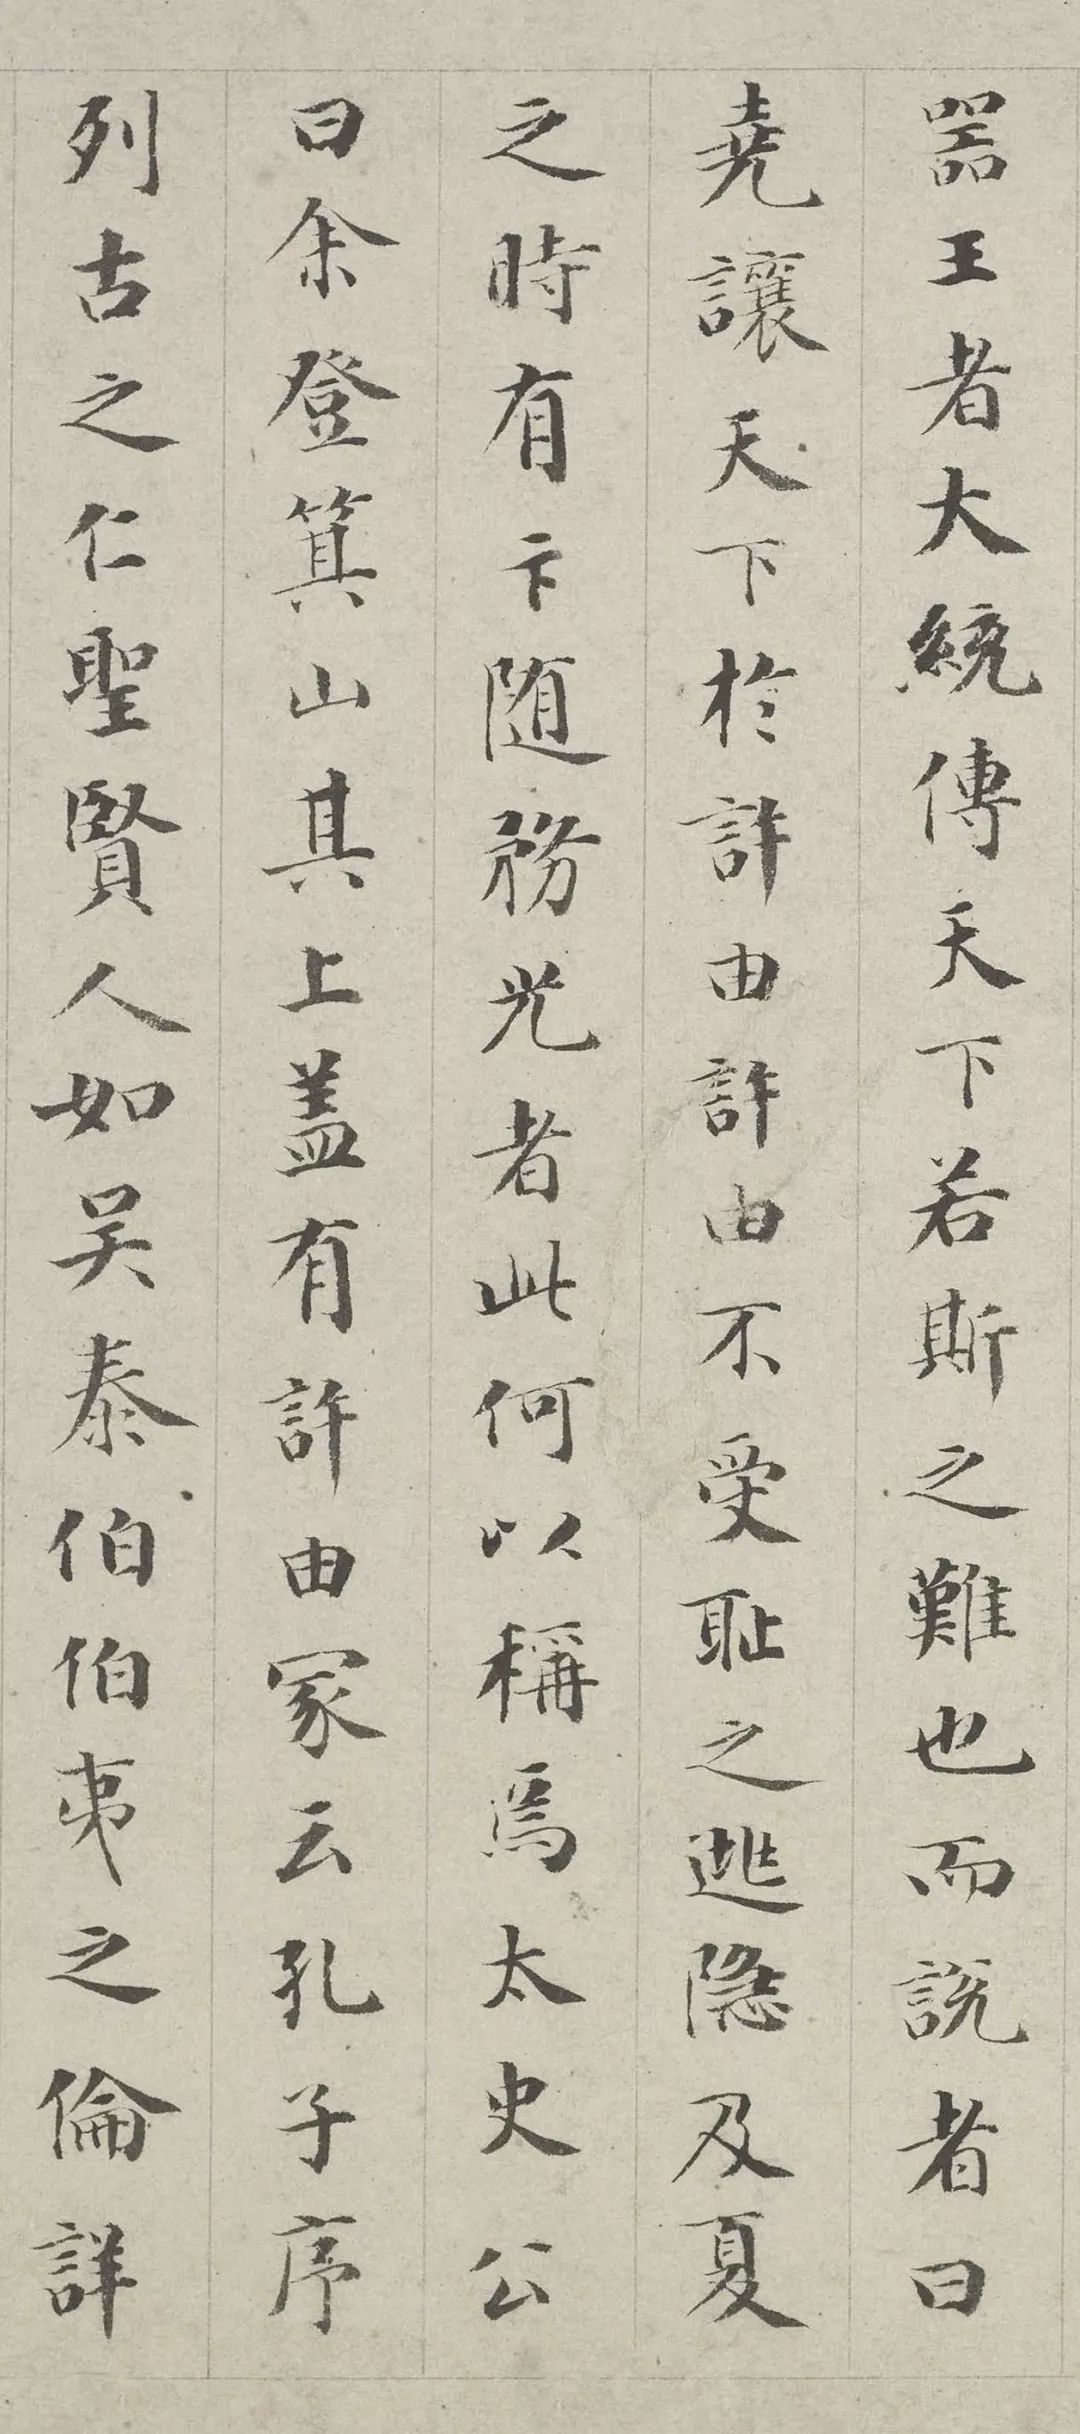 器王者大統傳天下若斯之難也而說者曰
堯讓天下於許由許由不受恥之逃隱及夏
之時有卞随務光者此何以稱焉太史公
曰余登箕山其上盖有許由冢云孔子序
列古之仁聖賢人如吴泰伯伯夷之倫詳